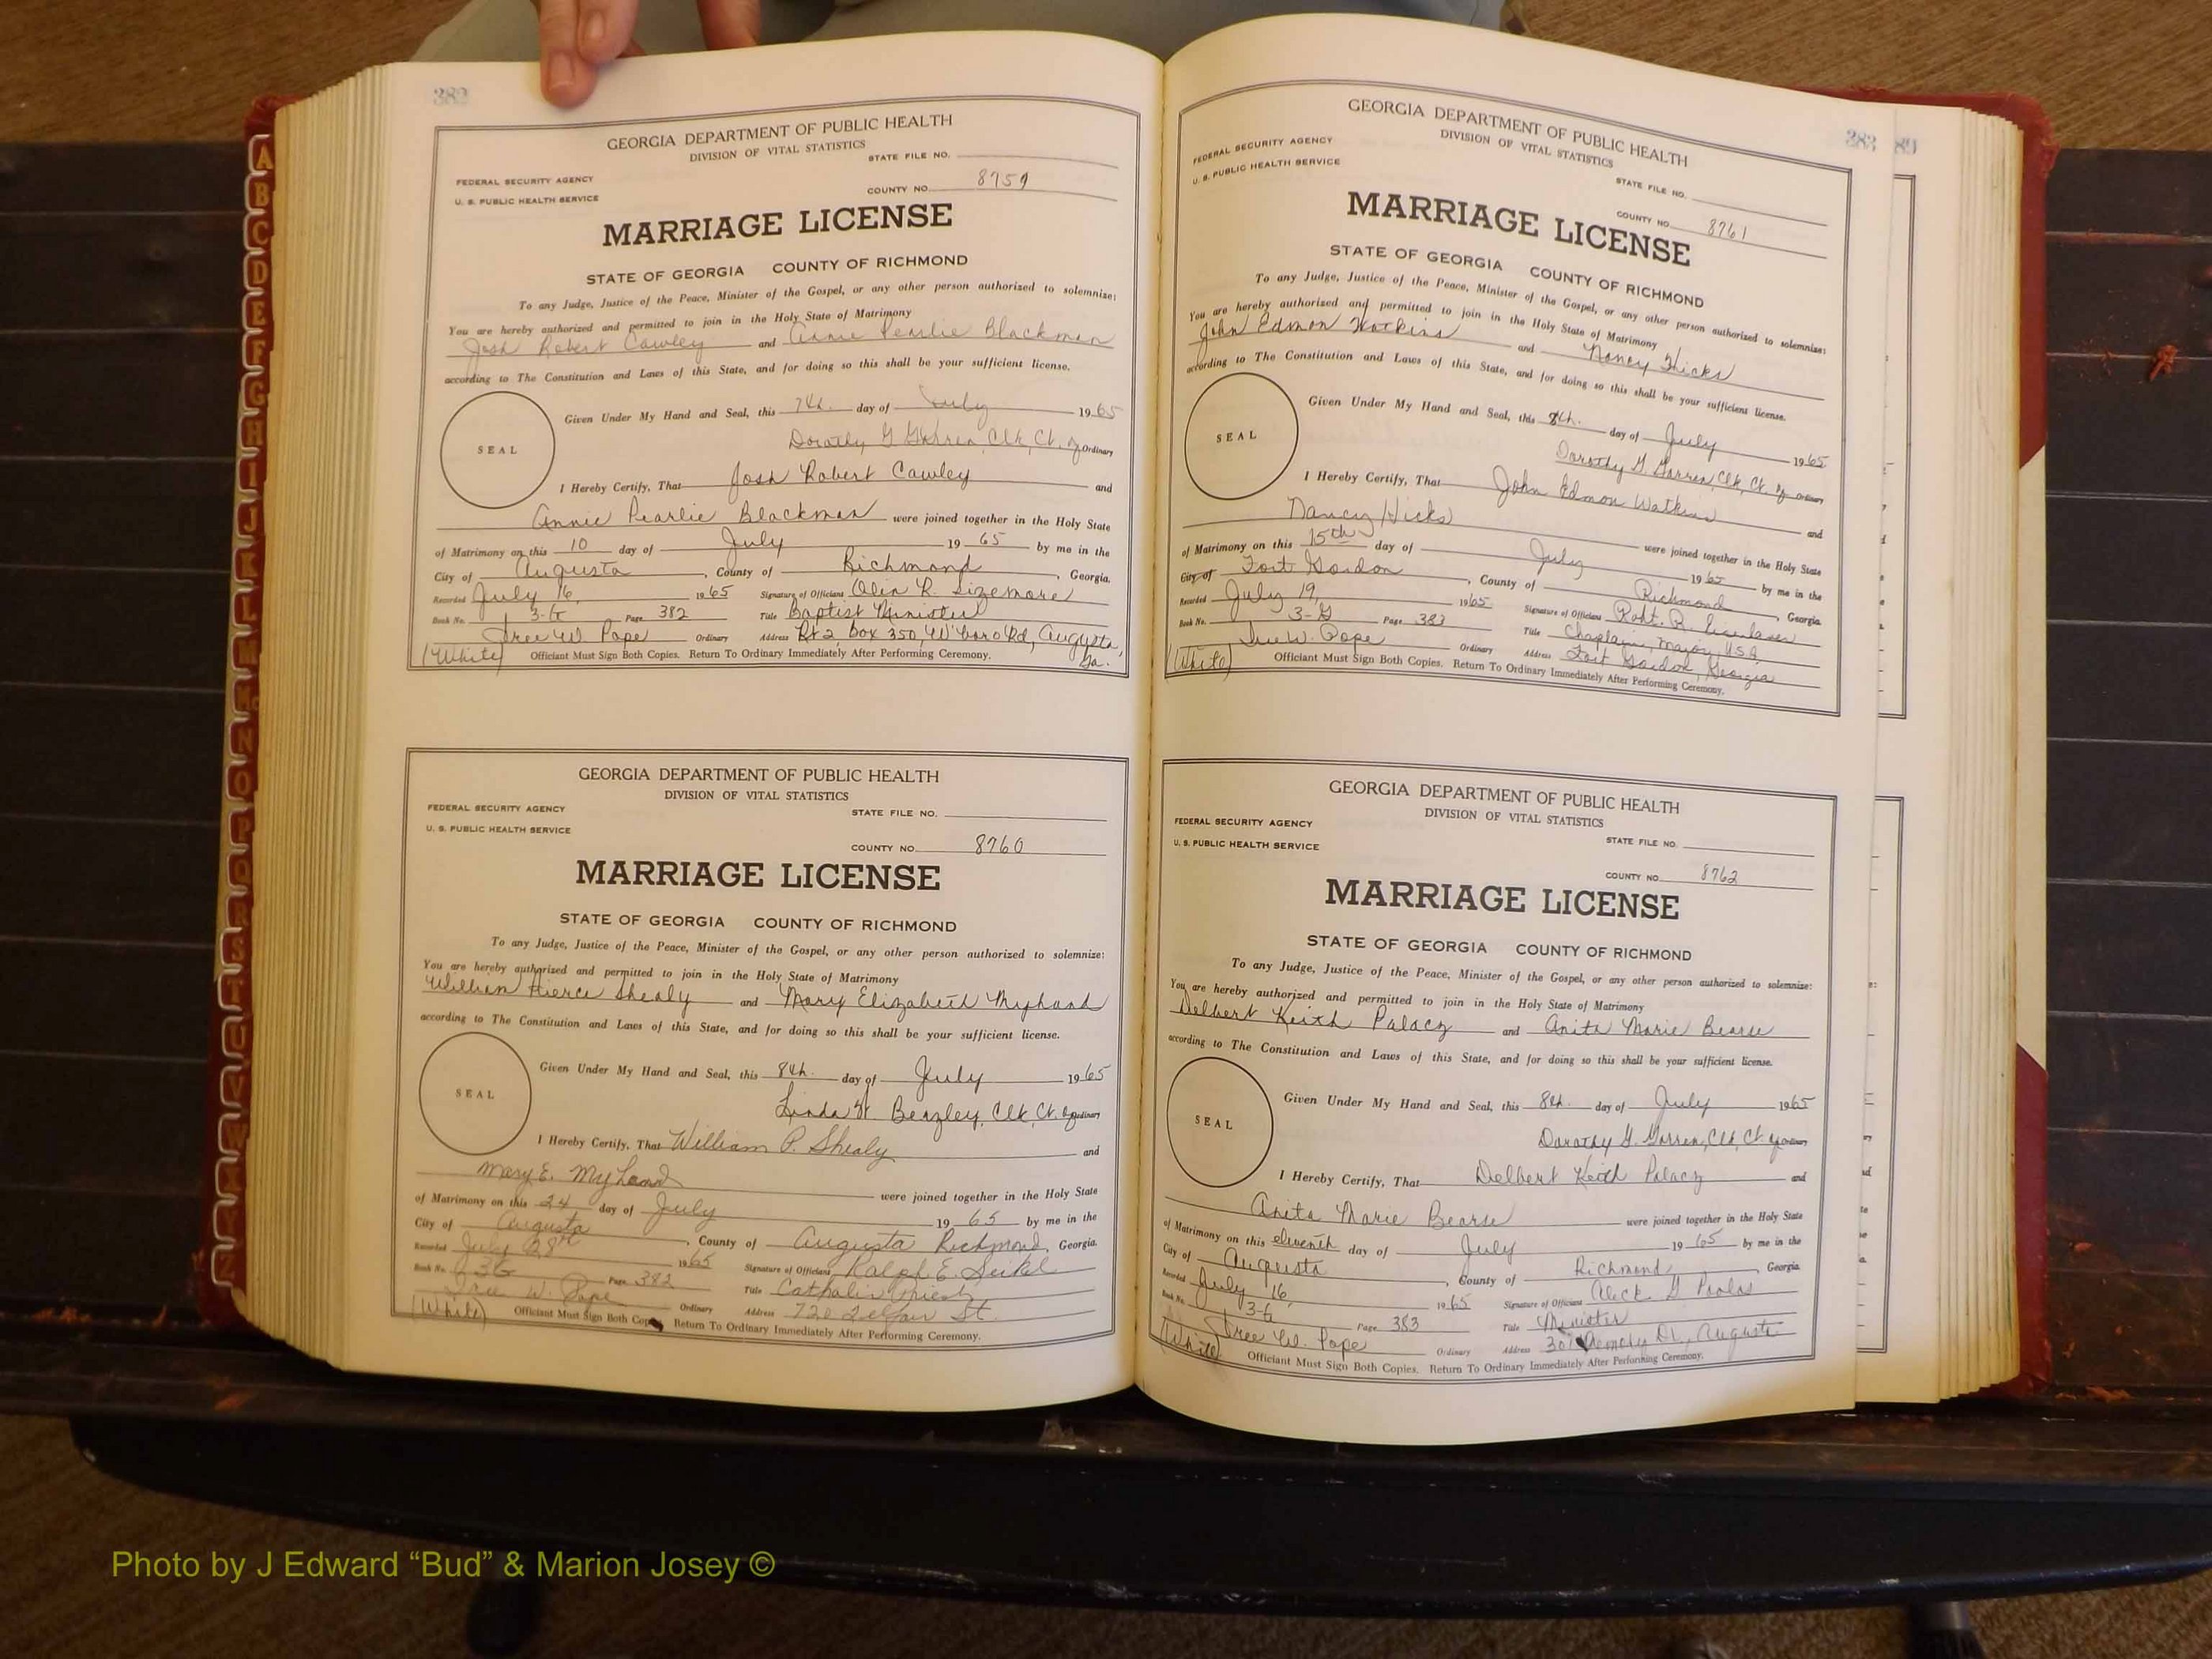 382
GEORGIA DEPARTMENT OF PUBLIC HEALTH
DIVISION OF VITAL STATISTICS
STATE FILE NO.
FEDERAL SECURITY AGENCY
U. S. PUBLIC HEALTH SERVICE
COUNTY NO. 8759
MARRIAGE LICENSE
STATE OF GEORGIA COUNTY OF RICHMOND
To any Judge, Justice of the Peace, Minister of the Gospel, or any other person authorized to solemnize:
You are hereby authorized and permitted to join in the Holy State of Matrimony
Josh Robert Cawley and Annie Pearlie Blackman
according to The Constitution and Laws of this State, and for doing so this shall be your sufficient license.
SEAL
Given Under My Hand and Seal, this 7th. day of July 1965
Dorothy G Garren, Clk, Ct. of Ordinary
I Hereby Certify, That Josh Robert Cawley and
Annie Pearlie Blackman were joined together in the Holy State
of Matrimony on this 10 day of July 1965 by me in the
City of Augusta, County of Richmond, Georgia.
Recorded July 16, 1965 Signature of Officiant Olin R. Sizemore
Book No. 3-G Page 382 Title Baptist Minister
Tree W. Pope Ordinary Address Rt 2, Box 350, W'boro Rd, Augusta, Ga.
(White) Officiant Must Sign Both Copies. Return To Ordinary Immediately After Performing Ceremony.
GEORGIA DEPARTMENT OF PUBLIC HEALTH
DIVISION OF VITAL STATISTICS
FEDERAL SECURITY AGENCY
STATE FILE NO.
U. S. PUBLIC HEALTH SERVICE
COUNTY NO. 8760
MARRIAGE LICENSE
STATE OF GEORGIA COUNTY OF RICHMOND
To any Judge, Justice of the Peace, Minister of the Gospel, or any other person authorized to solemnize:
You are hereby authorized and permitted to join in the Holy State of Matrimony
William Pierce Shealy and Mary Elizabeth Myhand
according to The Constitution and Laws of this State, and for doing so this shall be your sufficient license.
SEAL
Given Under My Hand and Seal, this 8th. day of July 1965
Linda H. Beazley, Clk, Ct. of Ordinary
I Hereby Certify, That William P. Shealy and
Mary E. Myhand were joined together in the Holy State
of Matrimony on this 24 day of July 1965 by me in the
City of Augusta, County of Augusta Richmond, Georgia.
Recorded July 28th 1965 Signature of Officiant Ralph E. Seikel
Book No. 3G Page 382 Title Catholic Priest
Tree W. Pope Ordinary Address 720 Telfair St.
(White) Officiant Must Sign Both Copies. Return To Ordinary Immediately After Performing Ceremony.
383 89
GEORGIA DEPARTMENT OF PUBLIC HEALTH
DIVISION OF VITAL STATISTICS
FEDERAL SECURITY AGENCY
U. S. PUBLIC HEALTH SERVICE
STATE FILE NO.
COUNTY NO. 8761
MARRIAGE LICENSE
STATE OF GEORGIA COUNTY OF RICHMOND
To any Judge, Justice of the Peace, Minister of the Gospel, or any other person authorized to solemnize:
You are hereby authorized and permitted to join in the Holy State of Matrimony
John Edmon Watkins and Nancy Hicks
according to The Constitution and Laws of this State, and for doing so this shall be your sufficient license.
SEAL
Given Under My Hand and Seal, this 8th. day of July 1965
Dorothy G Garren, Clk, Ct. of Ordinary
I Hereby Certify, That John Edmon Watkins and
Nancy Hicks were joined together in the Holy State
of Matrimony on this 15th day of July 1965 by me in the
City of Fort Gordon, County of Richmond, Georgia.
Recorded July 19, 1965 Signature of Officiant Robt. R.
Book No. 3-G Page 383 Title Chaplain, Major, USA
Tree W. Pope Ordinary Address Fort Gordon, Georgia
(White) Officiant Must Sign Both Copies. Return To Ordinary Immediately After Performing Ceremony.
GEORGIA DEPARTMENT OF PUBLIC HEALTH
DIVISION OF VITAL STATISTICS
FEDERAL SECURITY AGENCY
STATE FILE NO.
U. S. PUBLIC HEALTH SERVICE
COUNTY NO. 8762
MARRIAGE LICENSE
STATE OF GEORGIA COUNTY OF RICHMOND
To any Judge, Justice of the Peace, Minister of the Gospel, or any other person authorized to solemnize:
You are hereby authorized and permitted to join in the Holy State of Matrimony
Delbert Keith Palacz and Anita Marie Bearse
according to The Constitution and Laws of this State, and for doing so this shall be your sufficient license.
SEAL
Given Under My Hand and Seal, this 8th. day of July 1965
Dorothy G. Garren, Clk, Ct of Ordinary
I Hereby Certify, That Delbert Keith Palacz and
Anita Marie Bearse were joined together in the Holy State
of Matrimony on this eleventh day of July 1965 by me in the
City of Augusta, County of Richmond, Georgia
Recorded July 16, 1965 Signature of Officiant Aleck G
Book No. 3-G Page 383 Title Minister
Tree W. Pope Ordinary Address Dr., Augusta
(White) Officiant Must Sign Both Copies. Return To Ordinary Immediately After Performing Ceremony.
A
B
C
D
E
F
G
H
I
J
K
L
M
Mc
N
O
P
Q
R
S
T
U
V
W
Y
Z
Photo by J Edward “Bud” & Marion Josey ©